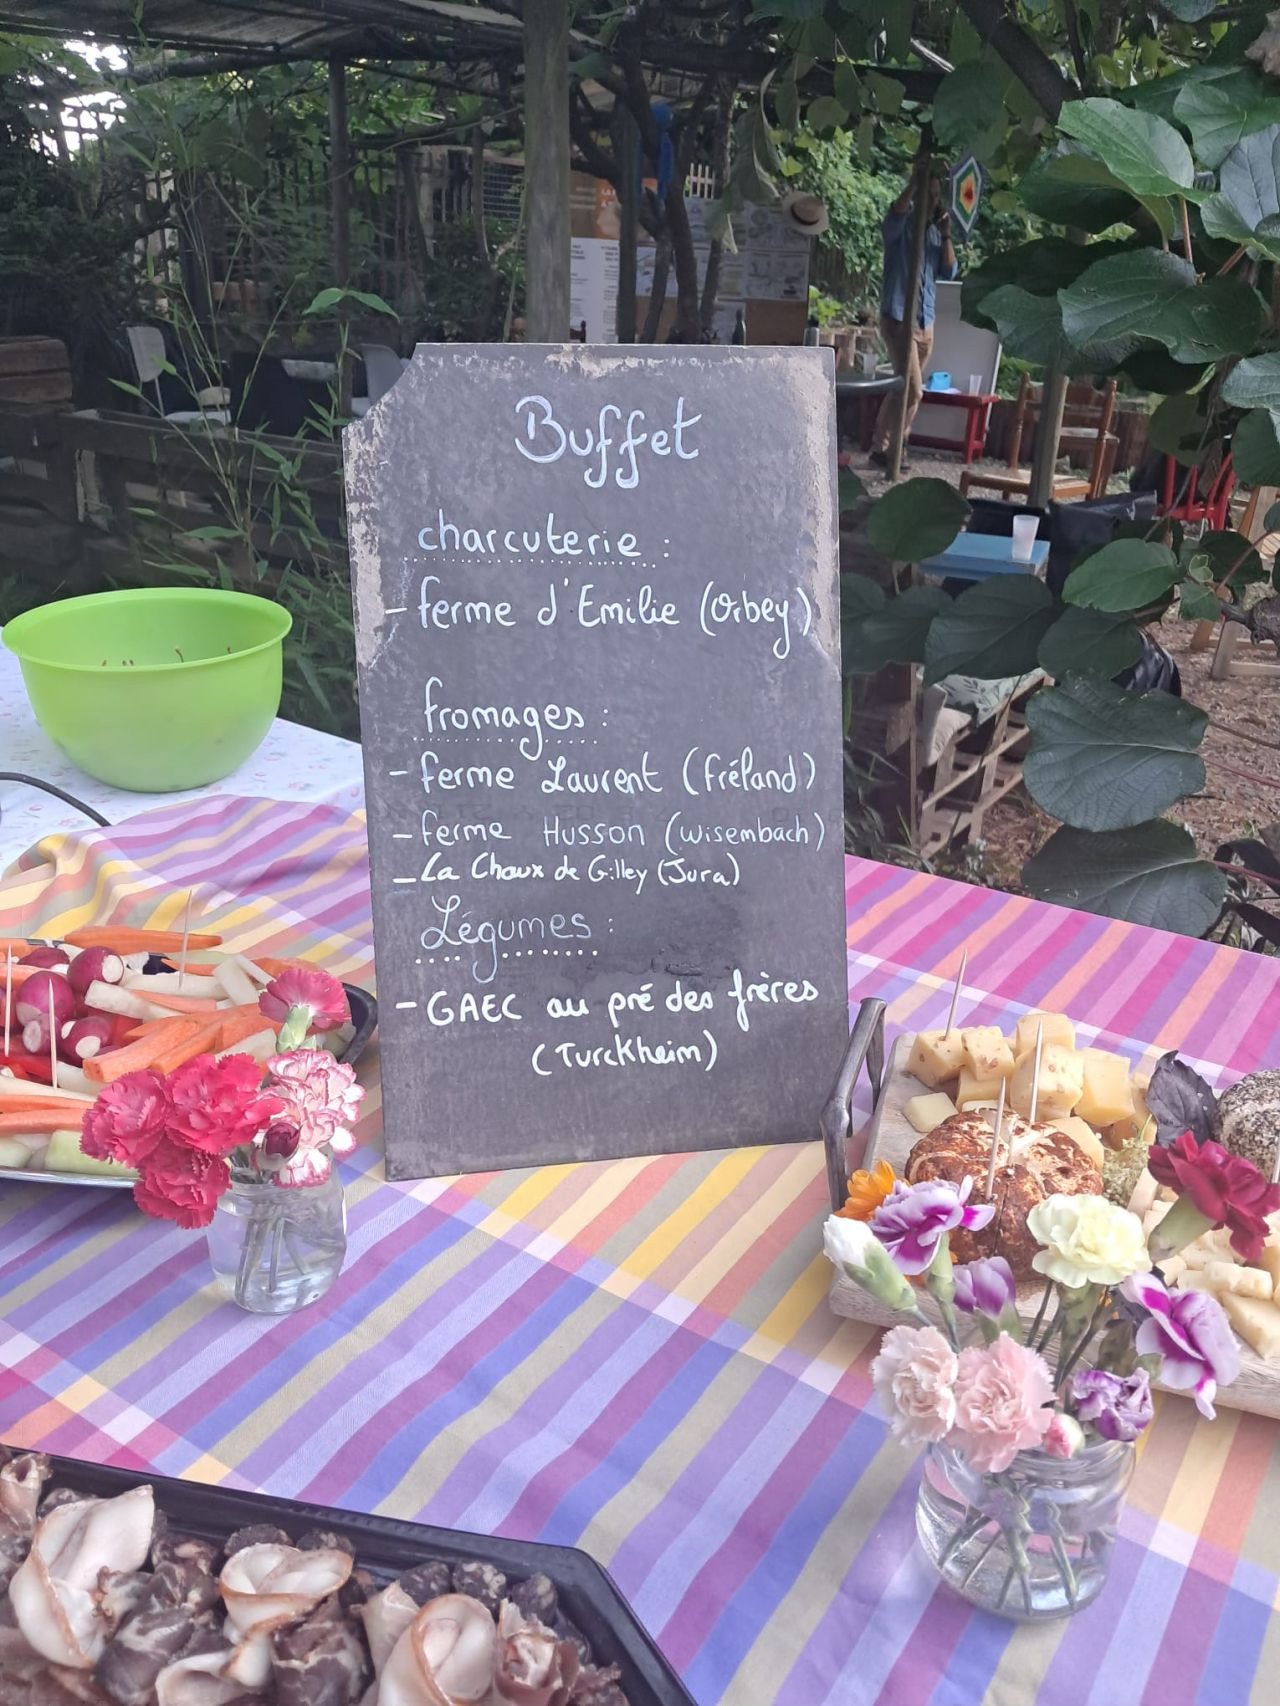 Buffet
charcuterie :
- ferme d'Emilie (Orbey)
fromages :
- ferme Laurent (Fréland)
- ferme Husson (Wisembach)
- La Chaux de Gilley (Jura)
Légumes :
- GAEC au pré des frères
(Turckheim)